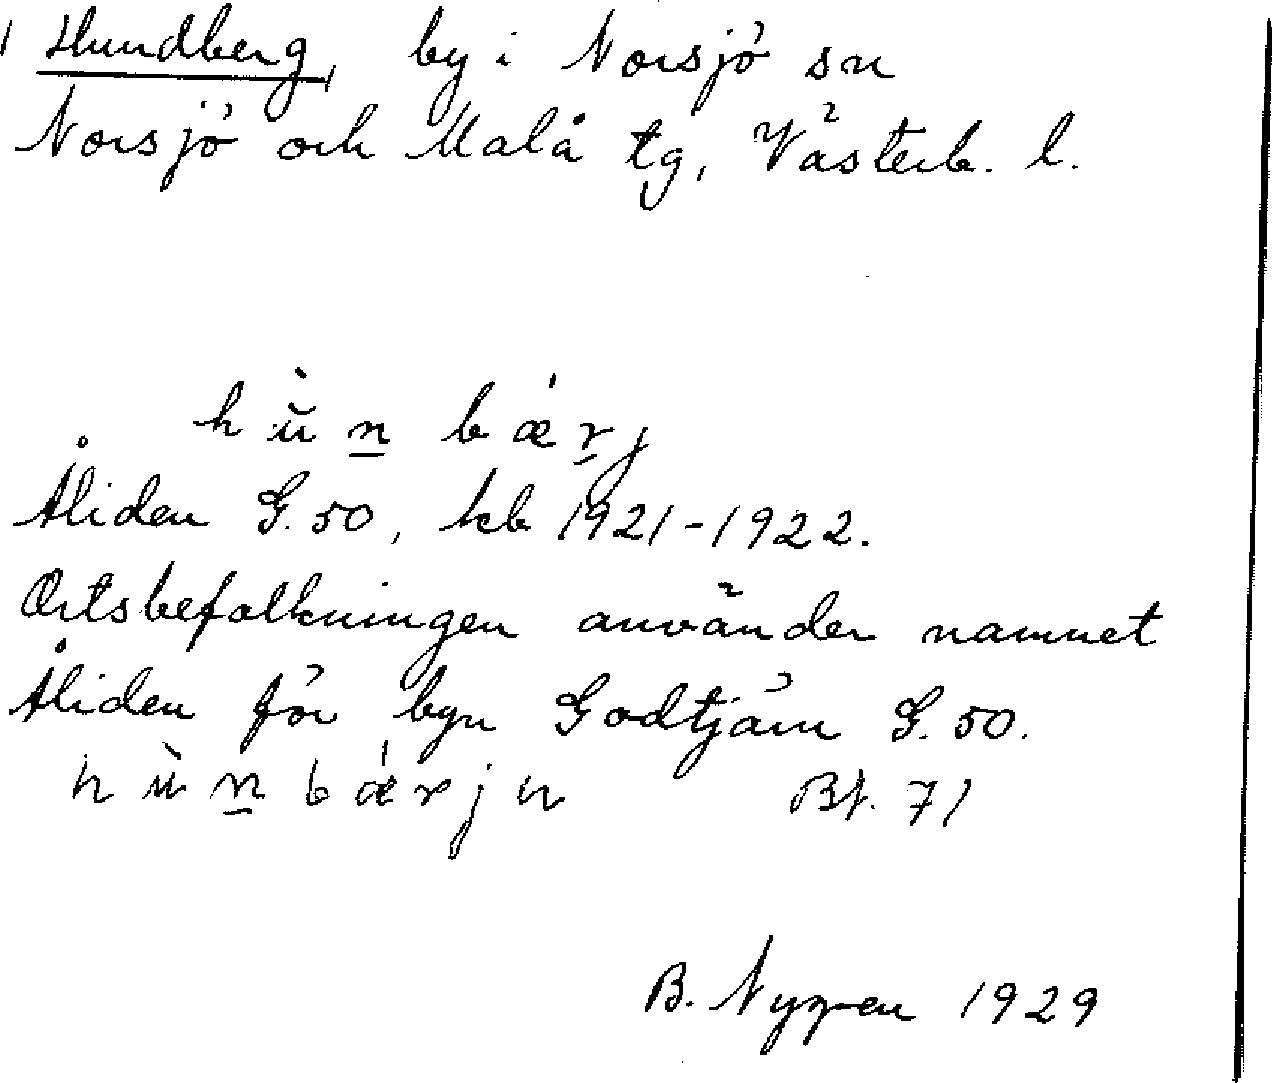 Hundberg, by i Norsjö sn
Norsjö och Malå tg, Västerb. l.
hùn bærj
Åliden G. 50, kb 1921-1922.
Ortsbefolkningen använder namnet
Åliden för byn Godtjärn G. 50.
hùnbærjn Bf. 71
B. Nygren 1929